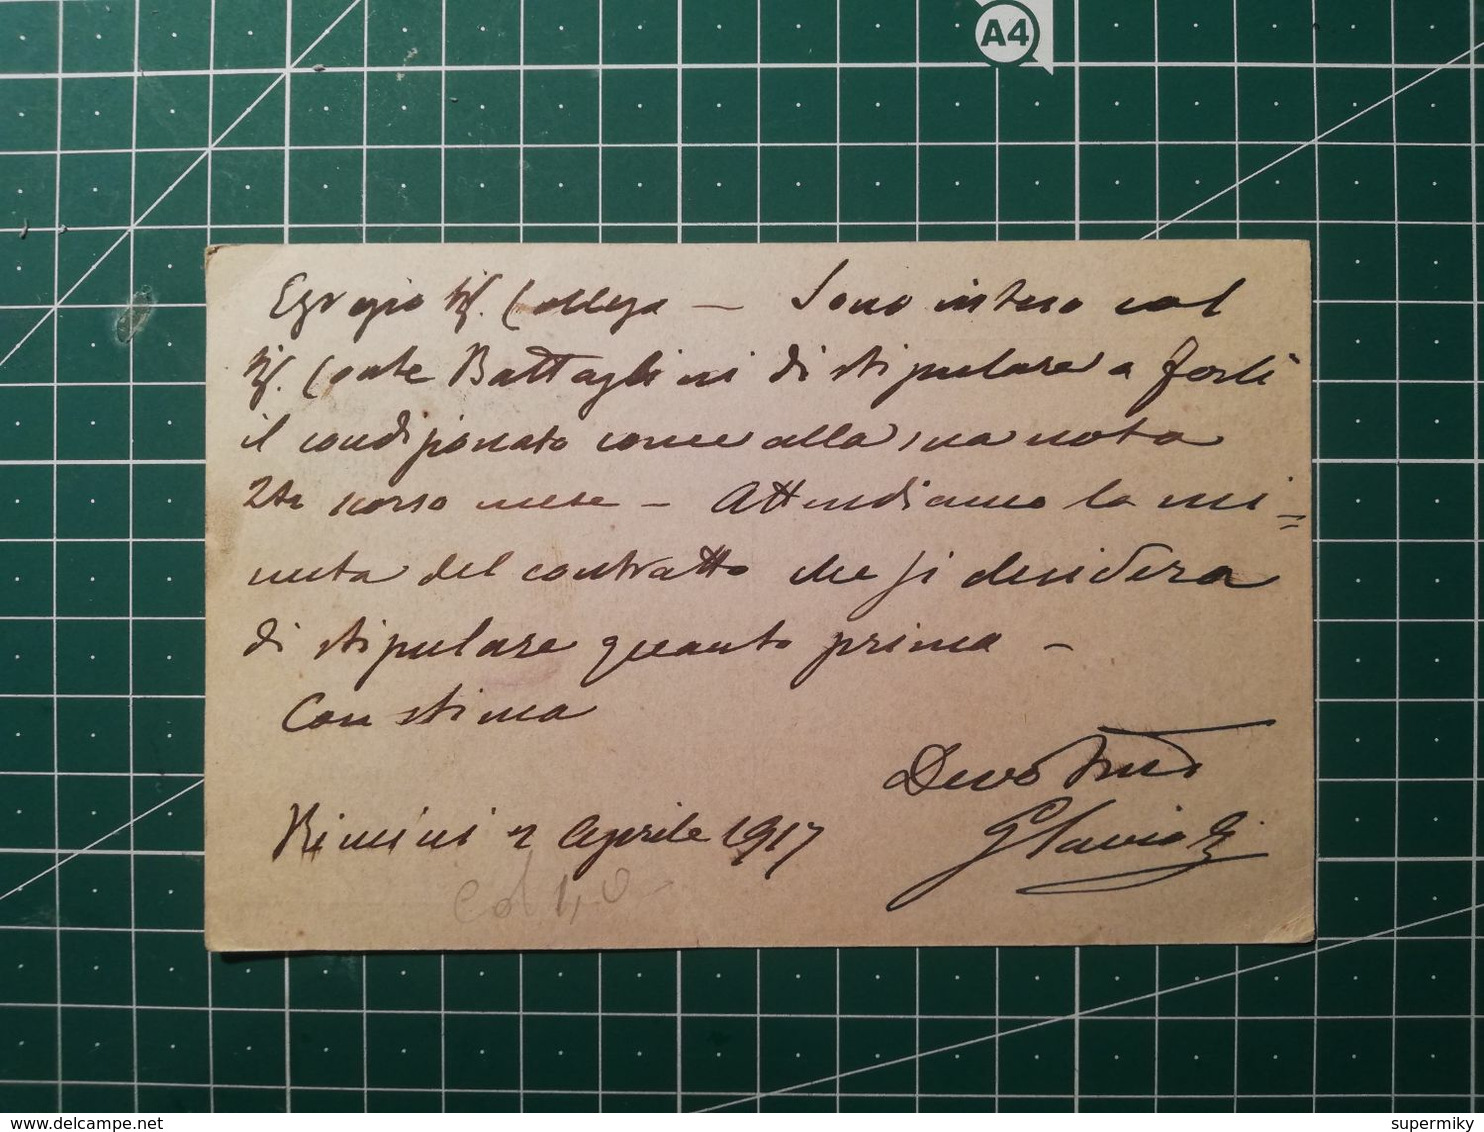 A4
Egregio Sig. Collega — Sono inteso col
Sig. Conte Battaglini di stipulare a Forlì
il condizionato come alla sua nota
scorso mese — Attendiamo la mi=
nuta del contratto che si desidera
di stipulare quanto prima —
Con stima
Rimini 2 Aprile 1917
delcampe.net
supermiky